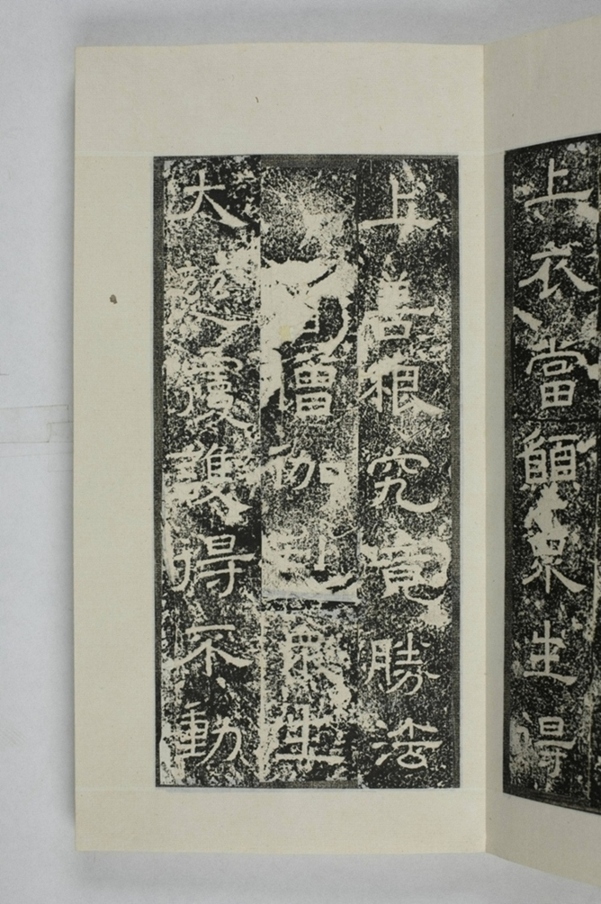 上衣當願衆生得
上善根究竟勝法
僧伽衆生
大慈覆護得不動